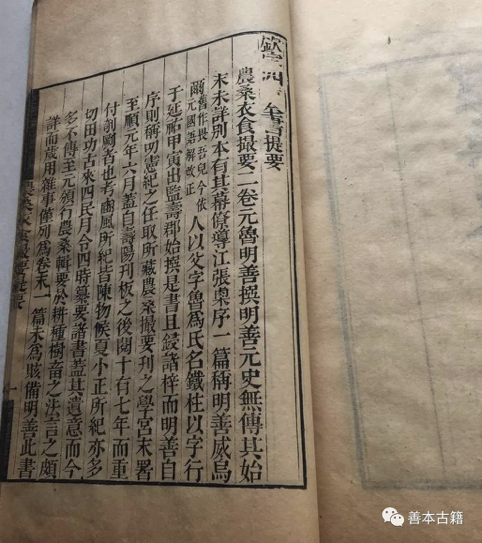 欽定四庫全書提要
農桑衣食撮要二卷元魯明善撰明善元史無傳其始
末未詳別本有其幕僚導江張㮚序一篇稱明善威烏
爾舊作畏吾兒今依元國語解改正人以父字魯為氏名鐵柱以字行
于延祐甲寅出監壽郡始撰是書且鋟諸梓而明善自
序則稱叨憲紀之任取所藏農桑撮要刊之學宮末署
至順元年六月蓋自壽陽刊板之後閱十有七年而重
付剞劂者也考豳風所紀皆陳物候夏小正所紀亦多
切田功古來四民月令四時纂要諸書蓋其遺意而今
多不傳至元頒行農桑輯要於耕種樹畜之法言之頗
詳而歲用雜事僅列為卷末一篇未為賅備明善此書
農桑衣食撮要提要
一
善本古籍